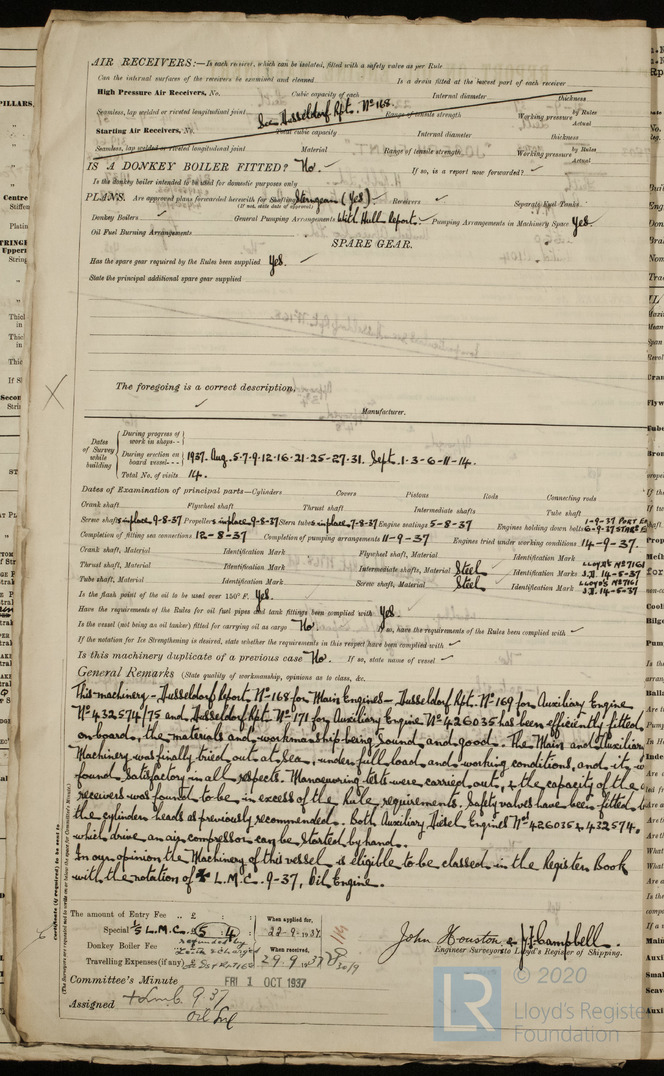 AIR RECEIVERS:—Is each receiver, which can be isolated, fitted with a safety valve as per Rule
Can the internal surfaces of the receivers be examined and cleaned Is a drain fitted at the lowest part of each receiver
High Pressure Air Receivers, No. Cubic capacity of each Internal diameter thickness
Seamless, lap welded or riveted longitudinal joint Range of tensile strength Working pressure by Rules
Actual
See Dusseldorf Rpt. No 168.
Starting Air Receivers, No. Total cubic capacity Internal diameter thickness
Seamless, lap welded or riveted longitudinal joint Material Range of tensile strength Working pressure by Rules
Actual
IS A DONKEY BOILER FITTED? No. If so, is a report now forwarded?
Is the donkey boiler intended to be used for domestic purposes only
PLANS. Are approved plans forwarded herewith for Shafting Sterngear (Yes) Receivers Separate Fuel Tanks
Donkey Boilers General Pumping Arrangements With Hull Report. Pumping Arrangements in Machinery Space Yes.
Oil Fuel Burning Arrangements
SPARE GEAR.
Has the spare gear required by the Rules been supplied Yes.
State the principal additional spare gear supplied
The foregoing is a correct description,
Manufacturer.
Dates of Survey while building
During progress of work in shops--
During erection on board vessel--- 1937. Aug. 5.7.9.12.16.21.25.27.31. Sept. 1.3.6.11.14.
Total No. of visits 14.
Dates of Examination of principal parts—Cylinders Covers Pistons Rods Connecting rods
Crank shaft Flywheel shaft Thrust shaft Intermediate shafts Tube shaft
Screw shaft in place 9-8-37 Propeller in place 9-8-37 Stern tube in place 7-8-37 Engine seatings 5-8-37 Engines holding down bolts 1-9-37 PORT E
6-9-37 STARB E
Completion of fitting sea connections 12-8-37 Completion of pumping arrangements 11-9-37 Engines tried under working conditions 14-9-37.
Crank shaft, Material Identification Mark Flywheel shaft, Material Identification Mark
Thrust shaft, Material Identification Mark Intermediate shafts, Material Steel Identification Marks LLOYD'S No 7161
J.H. 14-5-37
Tube shaft, Material Identification Mark Screw shaft, Material Steel Identification Mark LLOYD'S No 7161
J.H. 14-5-37
Is the flash point of the oil to be used over 150° F. Yes.
Have the requirements of the Rules for oil fuel pipes and tank fittings been complied with Yes.
Is the vessel (not being an oil tanker) fitted for carrying oil as cargo No If so, have the requirements of the Rules been complied with
If the notation for Ice Strengthening is desired, state whether the requirements in this respect have been complied with
Is this machinery duplicate of a previous case No. If so, state name of vessel
General Remarks (State quality of workmanship, opinions as to class, &c.
This machinery - Dusseldorf Report No 168 for Main Engines - Dusseldorf Rpt. No 169 for Auxiliary Engine
No 432574/75 and Dusseldorf Rpt. No 171 for Auxiliary Engine No 426035 has been efficiently fitted
on board, the materials and workmanship being sound and good. The Main and Auxiliary
Machinery was finally tried out at sea, under full load and working conditions, and it
found satisfactory in all respects. Manoeuvring tests were carried out, & the capacity of the
receivers was found to be in excess of the Rule requirements. Safety valves have been fitted
the cylinder heads as previously recommended. Both Auxiliary Diesel Engines Nos 426035 & 432574,
which drive an air compressor can be started by hand.
In our opinion the Machinery of this vessel is eligible to be classed in the Register Book
with the notation of ✠ L.M.C. 9-37, Oil Engine.
The amount of Entry Fee .. £ : : When applied for,
Special 1/5 L.M.C. £5 : 4 : 22-9-1937
Donkey Boiler Fee When received,
Travelling Expenses (if any) £ 29.9.1937 30/9
John Houston & J.J. Campbell.
Engineer Surveyors to Lloyd's Register of Shipping.
Committee's Minute FRI 1 OCT 1937
Assigned + Lmc 9 37
Oil Eng
© 2020
LR
Lloyd's Register
Foundation